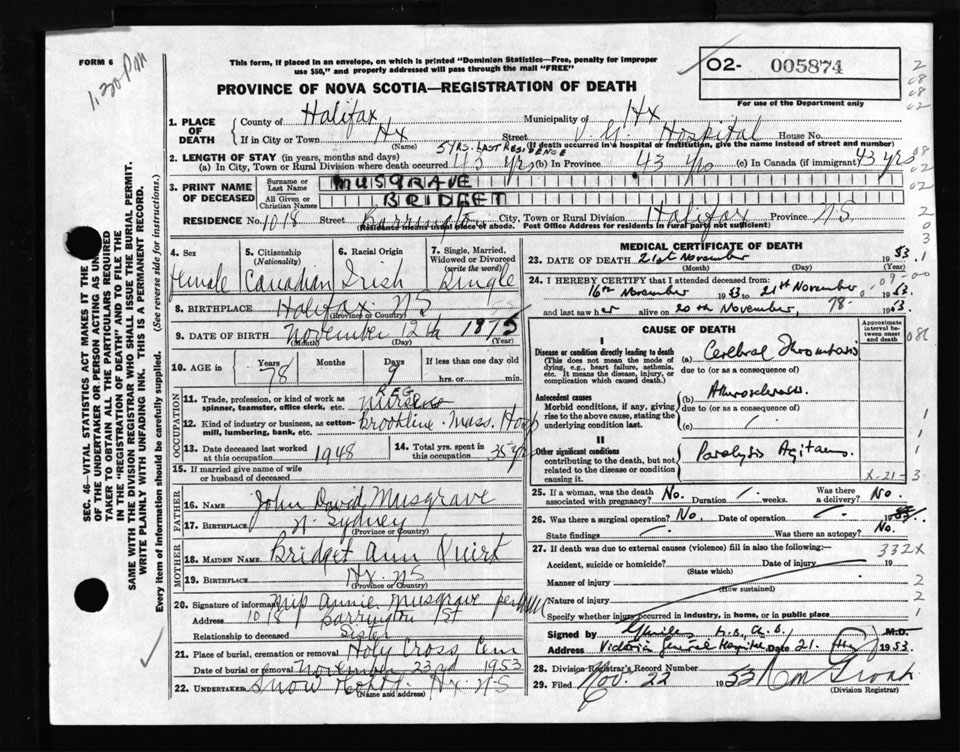 FORM 6
1.30 PM
This form, if placed in an envelope, on which is printed "Dominion Statistics—Free, penalty for improper
use $50," and properly addressed will pass through the mail "FREE"
O2- 005874
For use of the Department only
PROVINCE OF NOVA SCOTIA—REGISTRATION OF DEATH
1. PLACE OF DEATH
County of Halifax Municipality of Hx
If in City or Town Hx Street V.G. Hospital House No.
(Name) (If death occurred in a hospital or institution, give the name instead of street and number)
5 YRS. LAST RESIDENCE
2. LENGTH OF STAY (in years, months and days)
(a) In City, Town or Rural Division where death occurred 43 yrs (b) In Province 43 yrs (c) In Canada (if immigrant) 43 yrs
3. PRINT NAME OF DECEASED
Surname or Last Name MUSGRAVE
All Given or Christian Names BRIDGET
RESIDENCE No. 1018 Street Barrington City, Town or Rural Division Halifax Province N.S.
(Residence means usual place of abode. Post Office Address for residents in rural parts not sufficient)
4. Sex
female
5. Citizenship (Nationality)
Canadian
6. Racial Origin
Irish
7. Single, Married, Widowed or Divorced (write the word)
Single
8. BIRTHPLACE Halifax NS
(Province or Country)
9. DATE OF BIRTH November 12th 1875
(Month) (Day) (Year)
10. AGE in Years Months Days If less than one day old
78 9 hrs. or min.
OCCUPATION
11. Trade, profession, or kind of work as spinner, teamster, office clerk, etc. REG
12. Kind of industry or business, as cotton-mill, lumbering, bank, etc. Brookline Mass. Hosp
13. Date deceased last worked at this occupation 1948
14. Total yrs. spent in this occupation 35 yrs
15. If married give name of wife or husband of deceased
FATHER
16. NAME John David Musgrave
17. BIRTHPLACE N. Sydney
(Province or Country)
MOTHER
18. MAIDEN NAME Bridget Ann Quirk
19. BIRTHPLACE Hx. NS
(Province or Country)
20. Signature of informant Annie Musgrave per
Address 1018 Barrington St
Relationship to deceased Sister
21. Place of burial, cremation or removal Holy Cross Cem
Date of burial or removal November 23rd 1953
22. UNDERTAKER Snow Hx. N.S
(Name and address)
MEDICAL CERTIFICATE OF DEATH
23. DATE OF DEATH 21st November 1953
(Month) (Day) (Year)
24. I HEREBY CERTIFY that I attended deceased from
16th November 1953 to 21st November 1953
and last saw her alive on 20th November, 1953
CAUSE OF DEATH
Approximate interval between onset and death
I
Disease or condition directly leading to death
(This does not mean the mode of dying, e.g., heart failure, asthenia, etc. It means the disease, injury, or complication which caused death.)
(a) Cerebral Thrombosis
due to (or as a consequence of)
Antecedent causes
Morbid conditions, if any, giving rise to the above cause, stating the underlying condition last.
(b) Atherosclerosis
due to (or as a consequence of)
(c)
II
Other significant conditions
contributing to the death, but not related to the disease or condition causing it.
Paralysis Agitans
X-21-3
25. If a woman, was the death associated with pregnancy? No. Duration Was there a delivery? No.
26. Was there a surgical operation? No. Date of operation 19
State findings Was there an autopsy? No.
27. If death was due to external causes (violence) fill in also the following:—
332X
Accident, suicide or homicide? Date of injury 19
(State which)
Manner of injury
(How sustained)
Nature of injury
Specify whether injury occurred in industry, in home, or in public place
Signed by M.B., Ch.B. M.D.
Address Victoria General Hospital Date 21. 1953.
28. Division Registrar's Record Number
29. Filed Nov. 22 1953
(Division Registrar)
SEC. 46—VITAL STATISTICS ACT MAKES IT THE
OF THE UNDERTAKER OR PERSON ACTING AS
TAKER TO OBTAIN ALL THE PARTICULARS REQUIRED
IN THE "REGISTRATION OF DEATH" AND TO FILE THE
SAME WITH THE DIVISION REGISTRAR WHO SHALL ISSUE THE BURIAL PERMIT.
WRITE PLAINLY WITH UNFADING INK. THIS IS A PERMANENT RECORD.
Every item of information should be carefully supplied. (See reverse side for instructions.)